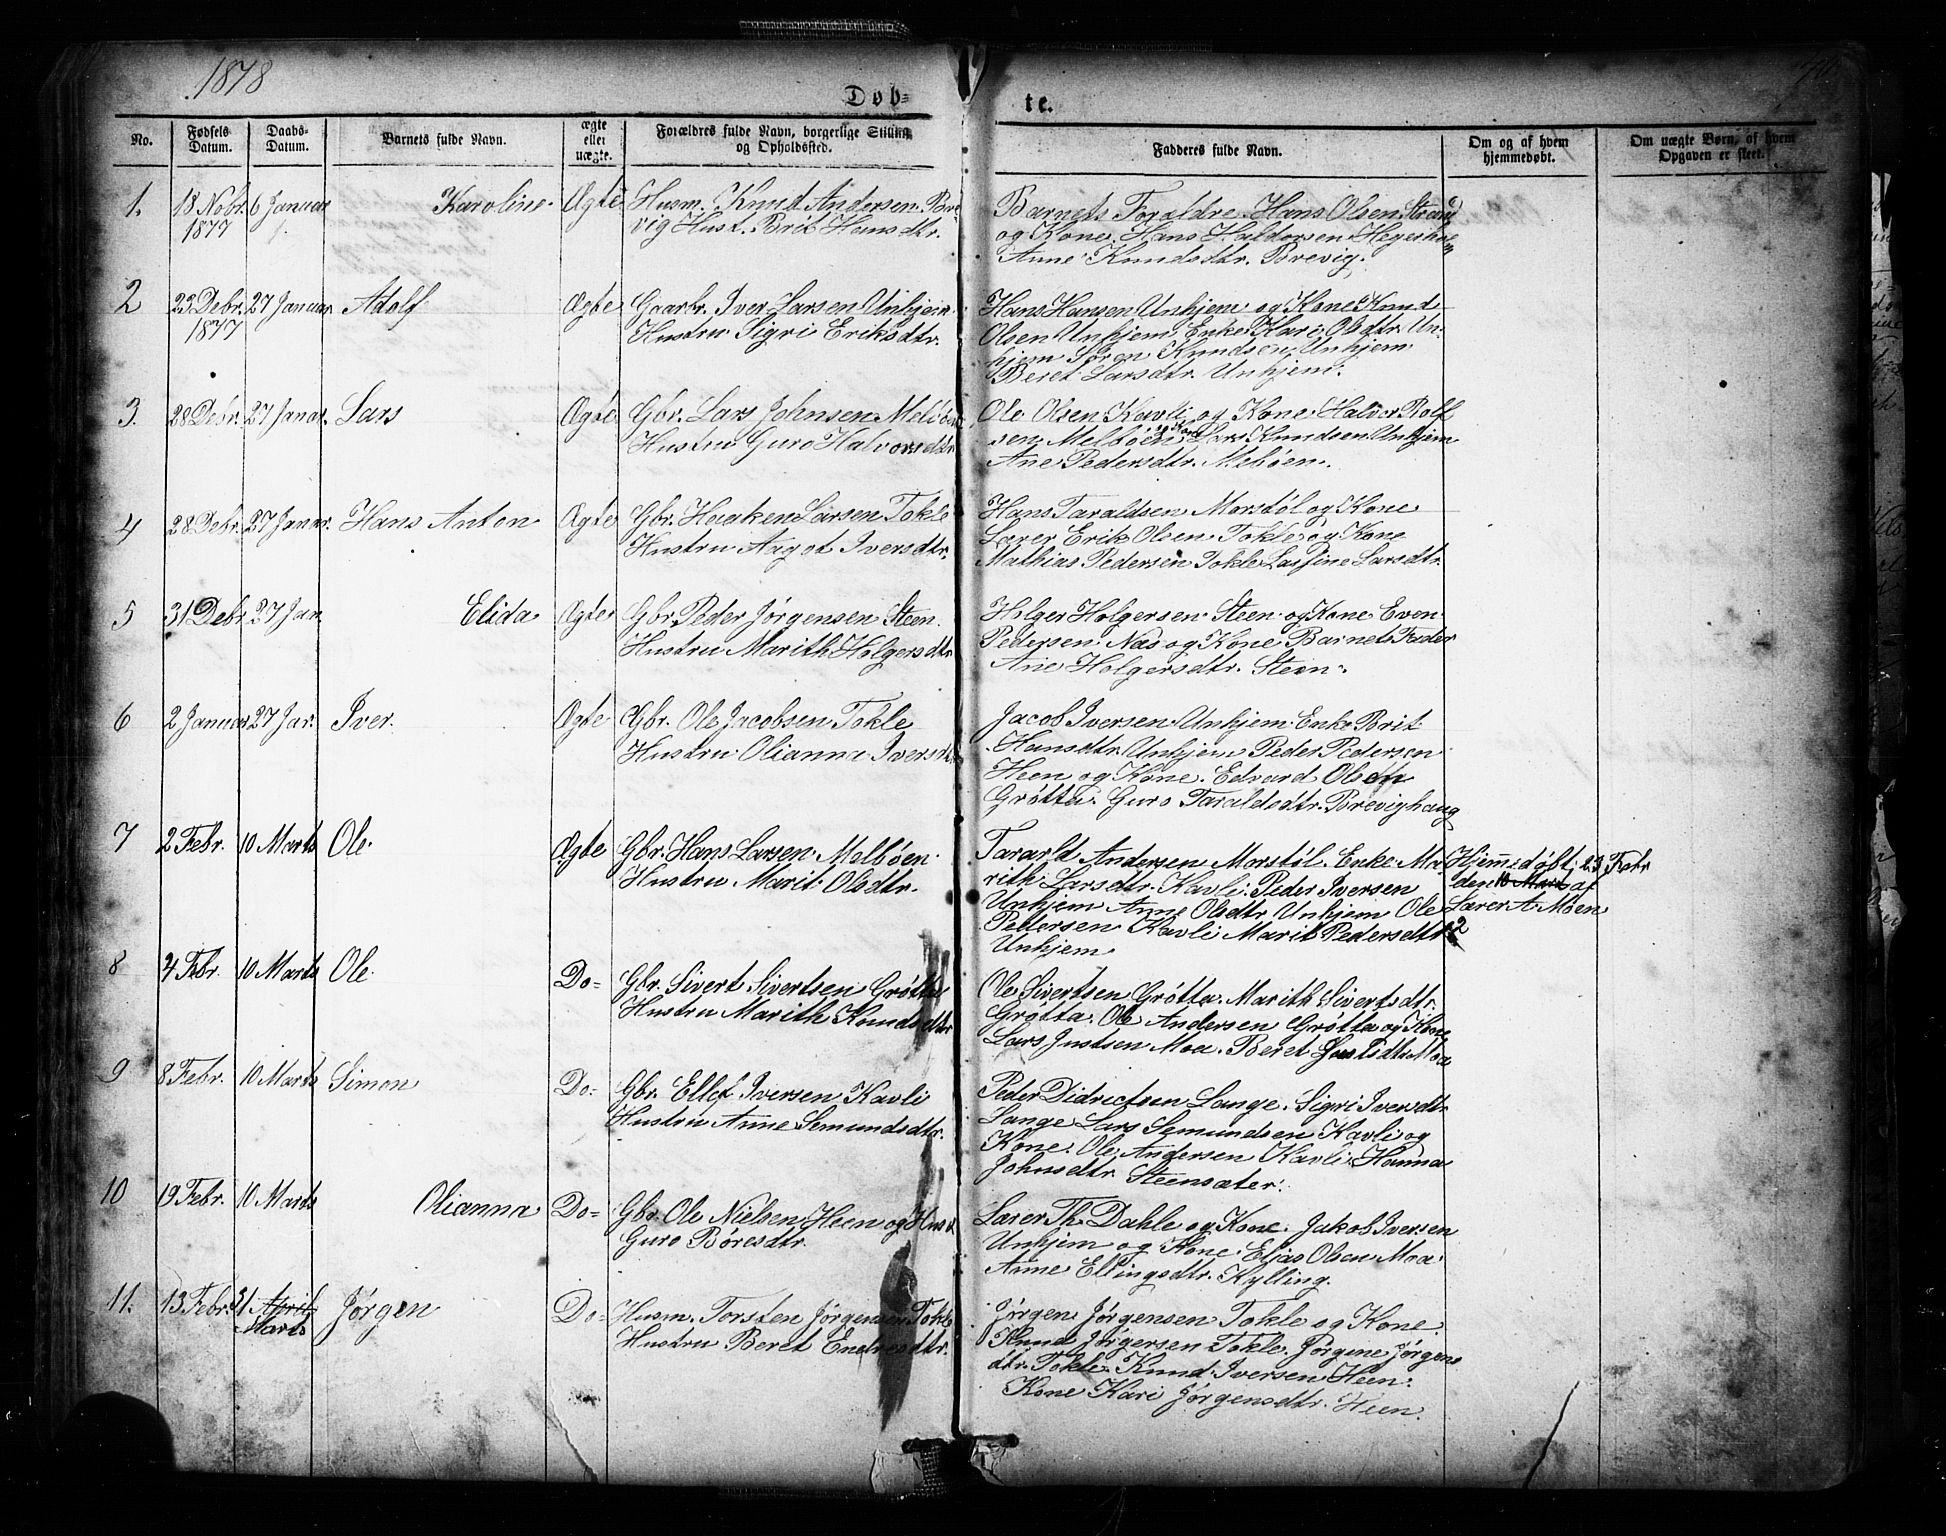 1878
Døb-
te.
No.
Fødsels Datum.
Daabs-Datum.
Barnets fulde Navn.
ægte eller uægte.
Forældres fulde Navn, borgerlige Stilling og Opholdssted.
Fadderes fulde Navn.
Om og af hvem hjemmedøbt.
Om uægte Børn, af hvem Opgaven er skeet.
1. 18 Nobr. 6 Januar Karoline. Ægte Husm. Knud Andersen Bre-
1877 vig Hust. Brit Hansdtr.
Barnets Foraldre. Hans Olsen Strand
og Kone. Hans Haldorsen Hegerholm
Anne Knudsdtr. Brevig.
2 23 Debr. 27 Januar. Adolf Ægte Gaarbr. Iver Larsen Unhjem
1877 Hustru Sigri Eriksdtr.
Hans Hansen Unhjem og Kone Knud
Olsen Unhjem, Enke Kari Olsdtr. Un-
hjem Søren Knudsen, Unhjem
Beret Larsdtr. Unhjem.
3. 28 Debr. 27 Janar. Lars Ægte Gbr. Lars Johnsen Melbøen
Hustru Guro Halvorsdtr
Ole Olsen Kavli og Kone. Halvor Rolf
sen Melbøen og Kone Lars Knudsen Unhjem
Ane Pedersdtr. Mebøen.
4 28 Debr. 27 Janar. Hans Anton Ægte Gbr. Haaken Larsen Tokle
Hustru Aagot Iversdtr.
Hans Taraldsen Morstøl og Kone
Lærer Erik Olsen Tokle og Kone
Mathias Pedersen Tokle Lasfine Larsdtr.
5 31 Debr 27 Jan Elida Ægte Gbr. Peder Jørgensen Steen.
Hustru Marith Holgersdtr
Holger Holgersen Steen og Kone Even
Pedersen Næs og Kone Barnets Fader
Ane Holgersdtr. Steen.
6 2 Januar 27 Jar. Iver. Ægte Gbr. Ole Jacobsen Tokle
Hustru Olianna Iversdtr
Jacob Iversen Unhjem. Enke Brit
Hansdtr. Unhjem Peder Pedersen
Heen og Kone. Edvard Olsen
Grøtta. Guro Taraldsdtr. Brevighaug
7 2 Febr. 10 Marts Ole. Ægte Gbr. Hans Larsen Melbøen
Hustru Marit Olsdtr.
Tarald Andersen Morstøl. Enke Ma
rith Larsdtr. Kavli. Peder Iversen
Unhjem Anne Olsdtr Unhjem Ole
Pettersen Kavli Marit Pedersdtr
Unhjem
Hjemmedøbt 23 Febr
den 10 Mart af
Lærer A. Møen
8 4 Febr. 10 Marts Ole. Do- Gbr. Sivert Sivertsen Grøtta
Hustru Marith Knudsdtr
Ole Sivertsen Grøtta. Marith Sivertsdtr.
Grøtta. Ole Andersen Grøtta og Kone
Lars Justsen Moa. Beret Justsdtr. Moa
9 8 Febr. 10 Marts Simon Do- Gbr. Ellef Iversen Kavli
Hustru Anne Semundsdtr.
Peder Didrictsen Lange. Sigri Iversdtr
Lange Lars Semundsen Kavli og
Kone. Ole Andersen Kavli. Hanna
Johnsdtr. Steensæter.
10 19 Febr. 10 Marts Olianna Do- Gbr. Ole Nielsen Heen og Hust
Guro Børesdtr.
Lærer Th. Dahle og Kone. Jakob Iversen
Unhjem og Kone. Eljas Olsen Moa
Anne Ellingsdtr. Kylling.
11. 13 Febr. 31 April Jørgen Do- Husm. Torsten Jørgensen Tokle
Marts Hustru Beret Endresdtr.
Jørgen Jørgensen Tokle og Kone
Knud Jørgersen Tokle. Jørgine Jørgens
dtr. Tokle. Knud Iversen Heen.
Kone Kari Jørgensdtr. Heen.